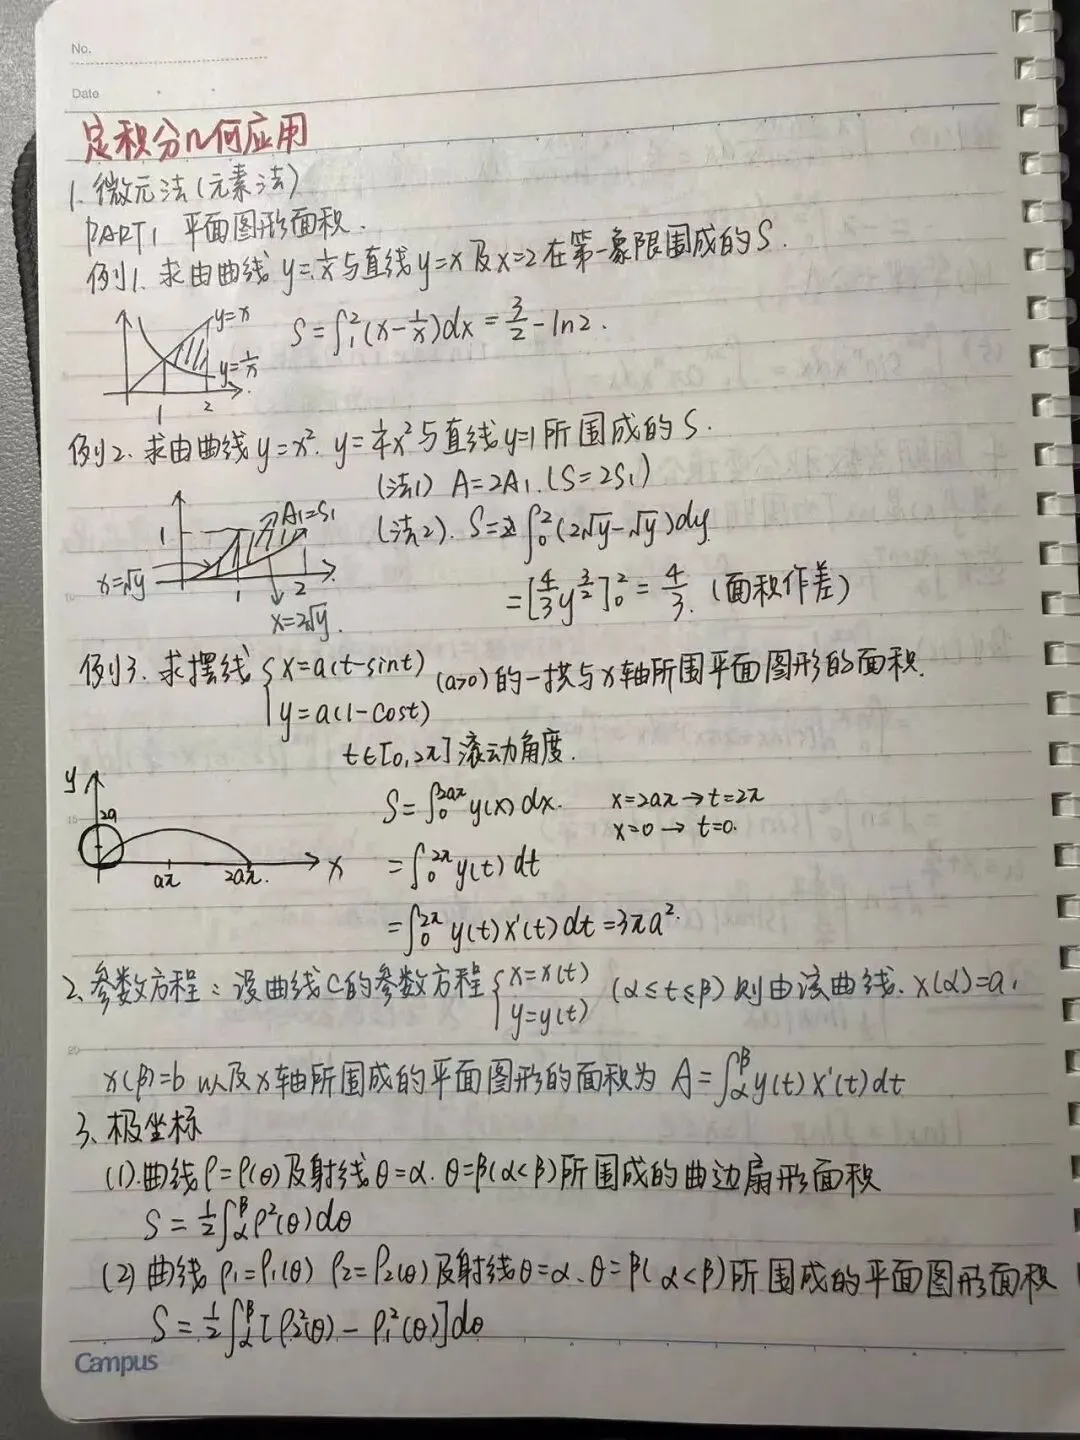 No.
Date
定积分几何应用
1. 微元法(元素法)
PART1 平面图形面积.
例1. 求由曲线 y=1/x 与直线 y=x 及 x=2 在第一象限围成的 S.
y=x
S=∫₁²(x-1/x)dx=3/2-ln2.
y=1/x
1 2
例2. 求由曲线 y=x². y=1/4x² 与直线 y=1 所围成的 S.
(法1) A=2A₁.(S=2S₁)
A₁=S₁
1
(法2). S=2∫₀²(2√y-√y)dy
x=√y
1 2
=[4/3y^(3/2)]₀²=4/3. (面积作差)
x=2√y.
例3. 求摆线 {x=a(t-sint) (a>0)的一拱与x轴所围平面图形的面积.
y=a(1-cost)
t∈[0,2π]滚动角度.
y
2a
S=∫₀^(2aπ) y(x)dx. x=2aπ→t=2π
x=0→t=0.
aπ 2aπ. x
=∫₀^(2π) y(t)dt
=∫₀^(2π) y(t)x'(t)dt=3πa².
2、参数方程：设曲线C的参数方程 {x=x(t) (α≤t≤β) 则由该曲线. x(α)=a,
y=y(t)
x(β)=b 以及x轴所围成的平面图形的面积为 A=∫_α^β y(t)x'(t)dt
3、极坐标
(1).曲线ρ=ρ(θ)及射线θ=α. θ=β(α<β)所围成的曲边扇形面积
S=1/2∫_α^β ρ²(θ)dθ
(2) 曲线 ρ₁=ρ₁(θ) ρ₂=ρ₂(θ)及射线θ=α、θ=β(α<β)所围成的平面图形面积
S=1/2∫_α^β[ρ₂²(θ)-ρ₁²(θ)]dθ
Campus